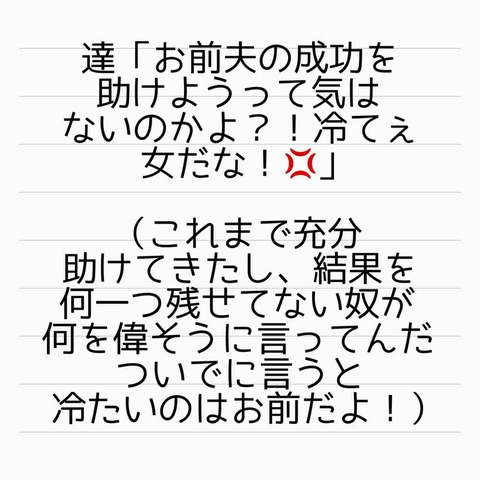 達「お前夫の成功を
助けようって気は
ないのかよ?!冷てぇ
女だな!💢」
(これまで充分
助けてきたし、結果を
何一つ残せてない奴が
何を偉そうに言ってんだ
ついでに言うと
冷たいのはお前だよ!)